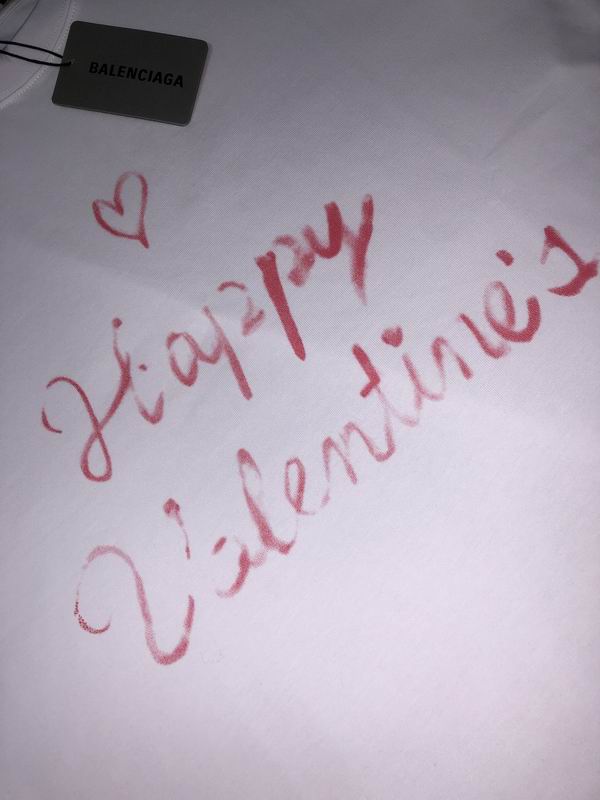 BALENCIAGA
Happy
Valentine's